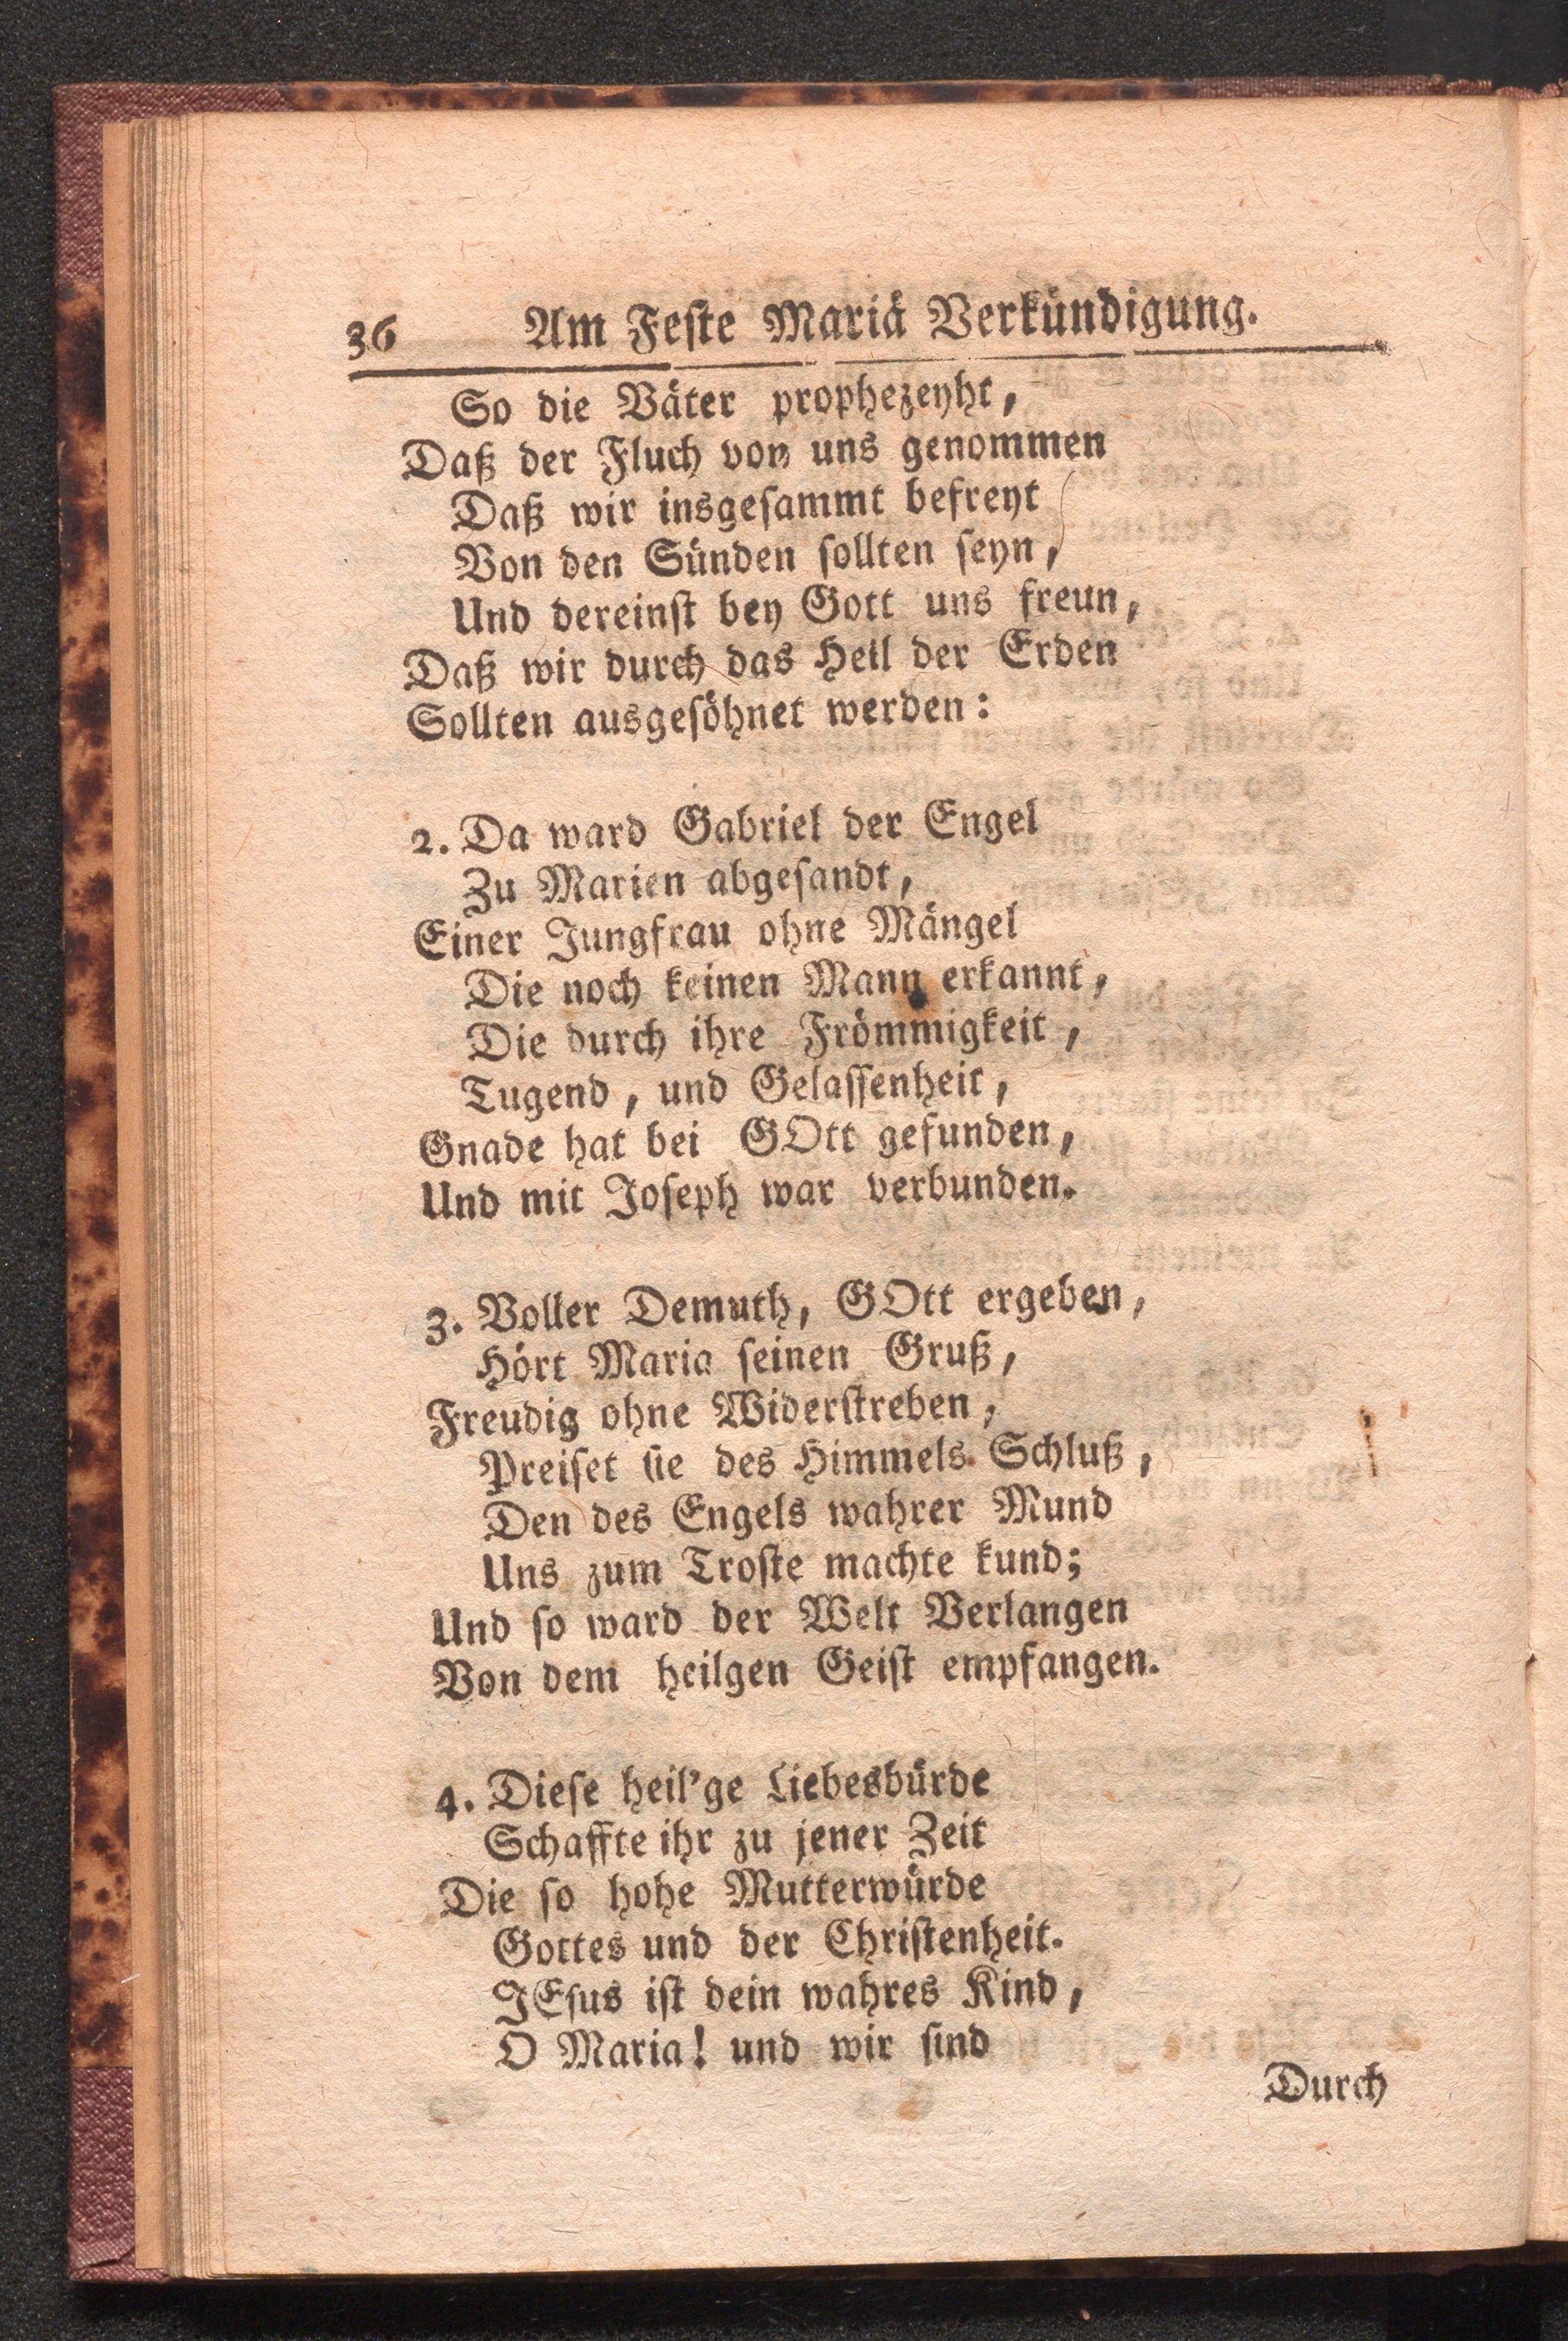 36 Am Feste Mariä Verkündigung.
So die Väter prophezeyht,
Daß der Fluch von uns genommen
Daß wir insgesammt befreyt
Von den Sünden sollten seyn,
Und dereinst bey Gott uns freun,
Daß wir durch das Heil der Erden
Sollten ausgesöhnet werden:
2. Da ward Gabriel der Engel
Zu Marien abgesandt,
Einer Jungfrau ohne Mängel
Die noch keinen Mann erkannt,
Die durch ihre Frömmigkeit,
Tugend, und Gelassenheit,
Gnade hat bei GOtt gefunden,
Und mit Joseph war verbunden.
3. Voller Demuth, GOtt ergeben,
Hört Maria seinen Gruß,
Freudig ohne Widerstreben,
Preiset sie des Himmels Schluß,
Den des Engels wahrer Mund
Uns zum Troste machte kund;
Und so ward der Welt Verlangen
Von dem heilgen Geist empfangen.
4. Diese heil'ge Liebesbürde
Schaffte ihr zu jener Zeit
Die so hohe Mutterwürde
Gottes und der Christenheit.
JEsus ist dein wahres Kind,
O Maria! und wir sind
Durch